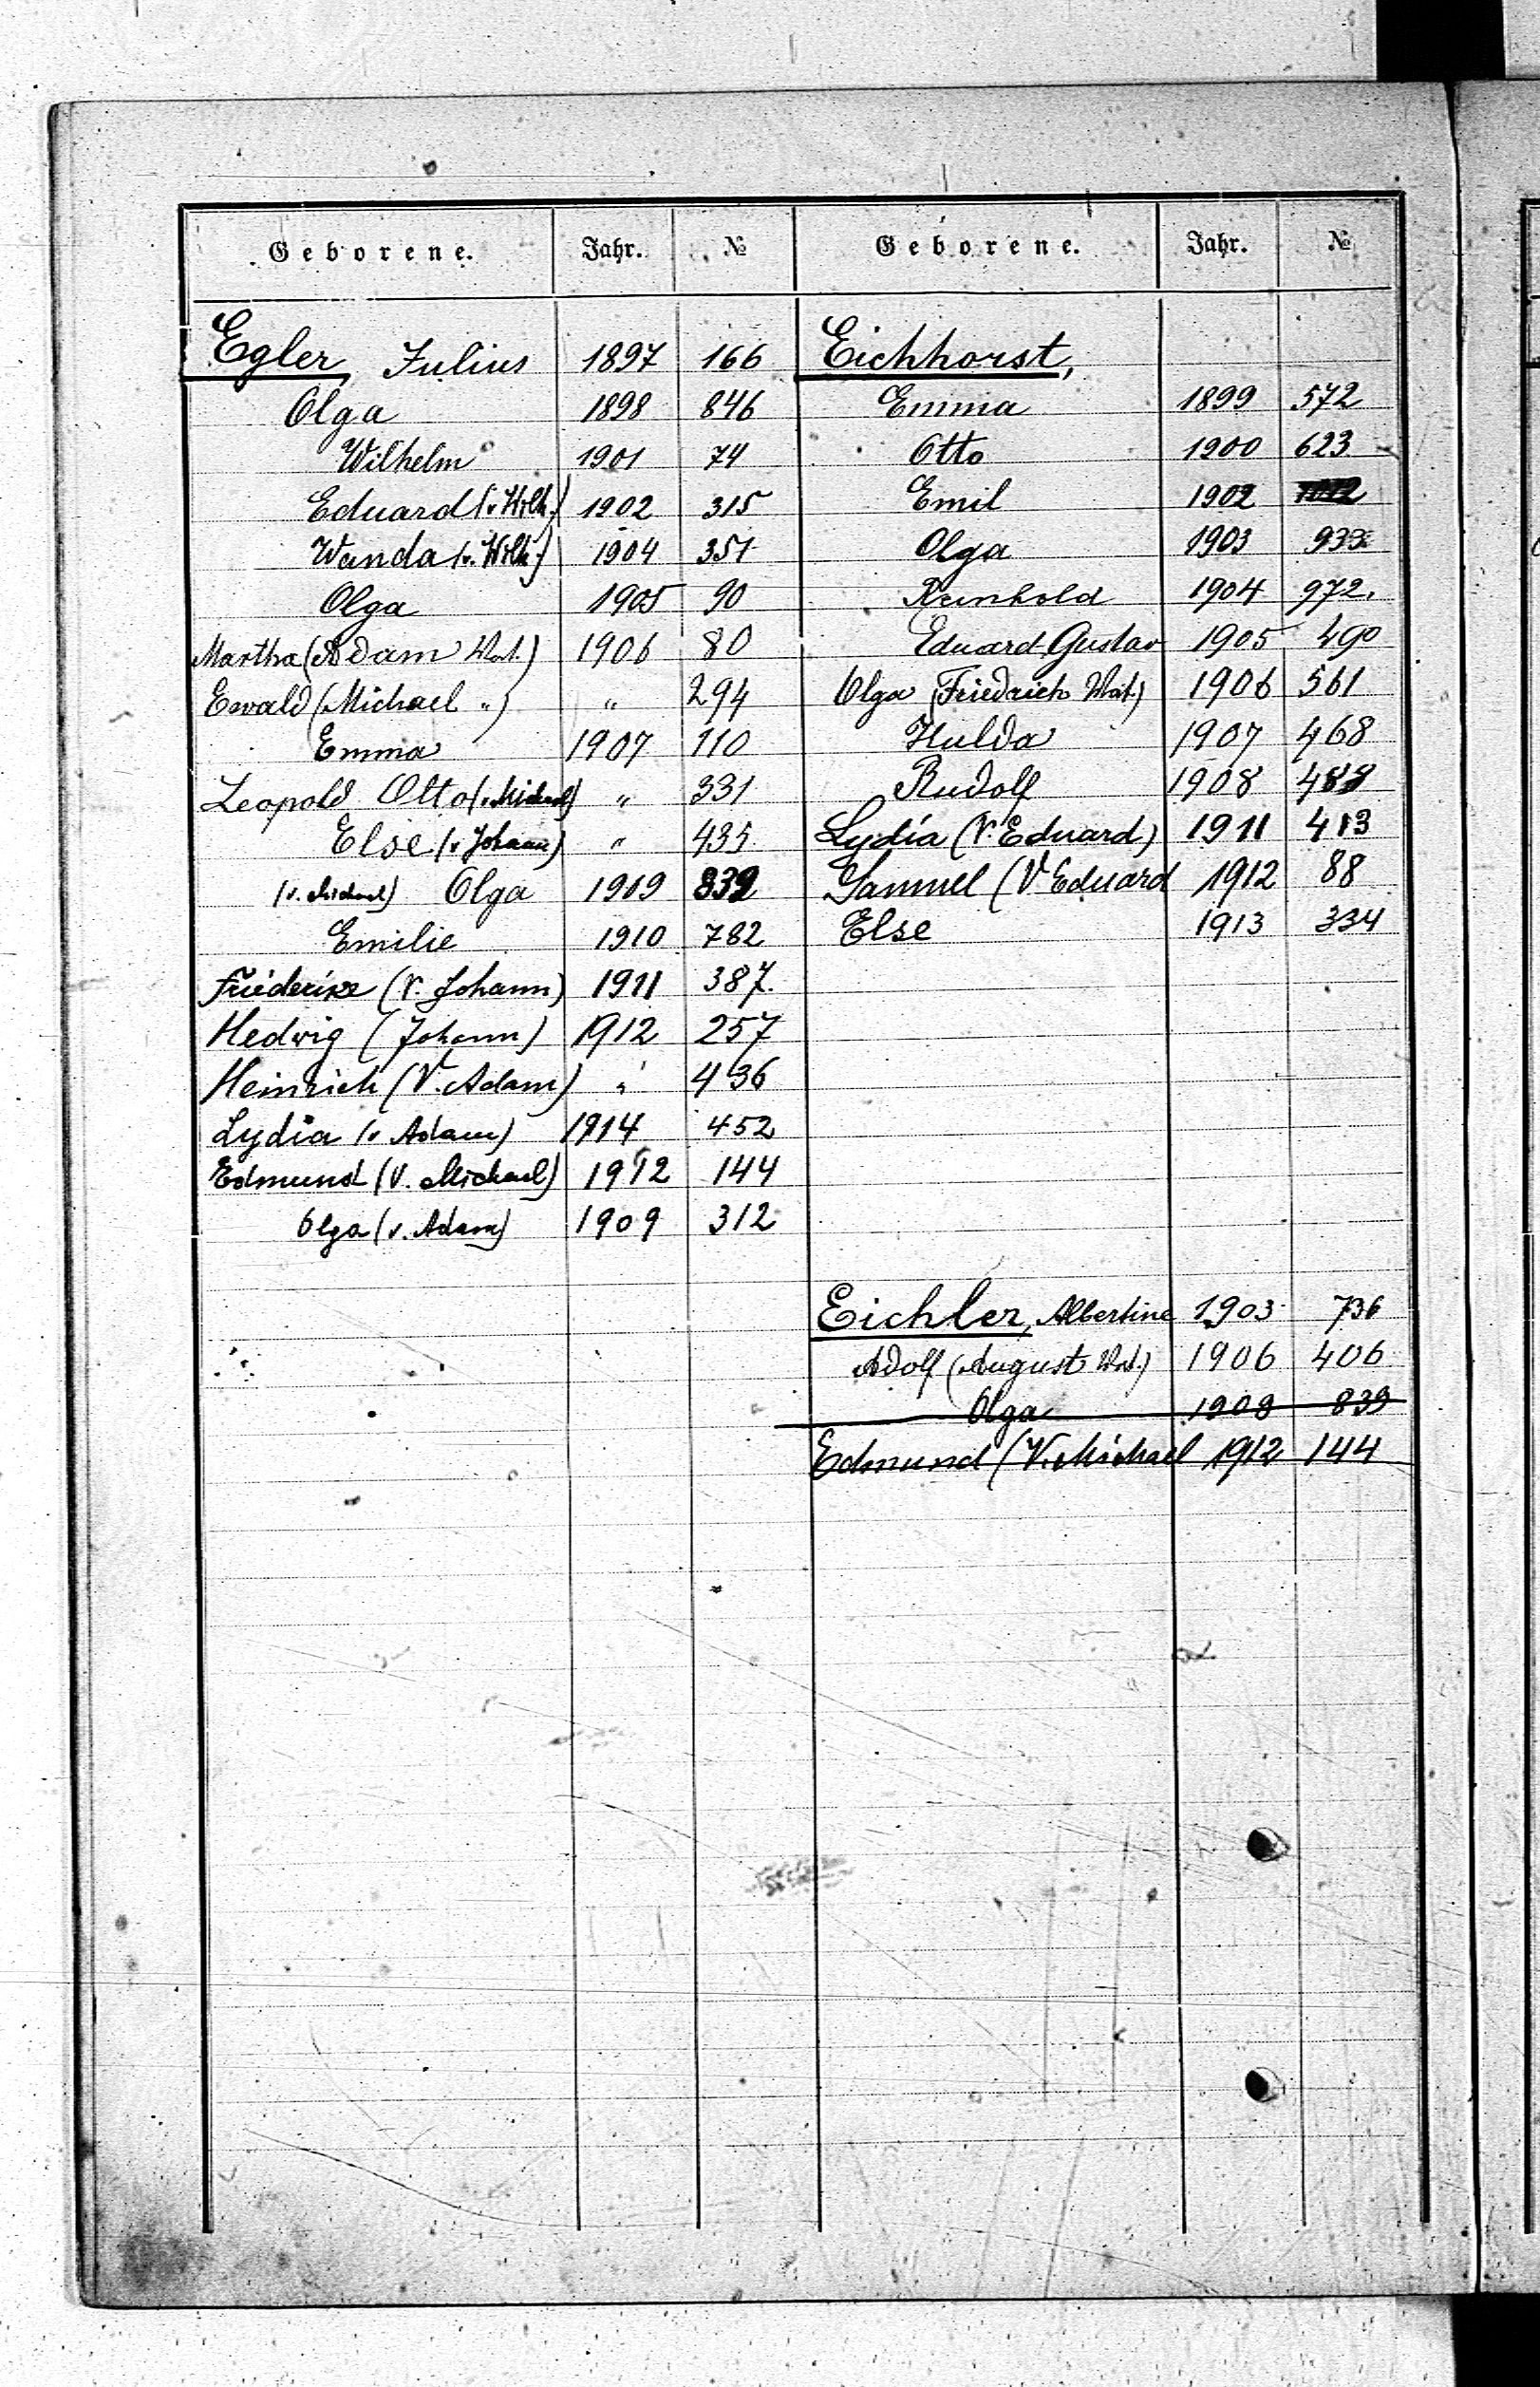 Geborene. Jahr. №
Egler, Julius 1897 166
Olga 1898 846
Wilhelm 1901 74
Eduard (v. Wilh.) 1902 315
Wanda (v. Wilh.) 1904 351
Olga 1905 90
Martha (Adam Vat.) 1906 80
Ewald (Michael „) „ 294
Emma 1907 110
Leopold Otto (v. Michael) „ 331
Else (v Johann) „ 435
(v. Michael) Olga 1909 839
Emilie 1910 782
Friederike (V. Johann) 1911 387.
Hedwig (Johann) 1912 257
Heinrich (V. Adam) „ 436
Lydia (v Adam) 1914 452
Edmund (V. Michael) 1912 144
Olga (v. Adam) 1909 312
Geborene. Jahr. №
Eichhorst,
Emma 1899 572
Otto 1900 623
Emil 1902
Olga 1903
Reinhold 1904 972.
Eduard Gustav 1905 490
Olga (Friedrich Vat.) 1906 561
Hulda 1907 468
Rudolf 1908
Lydia (V. Eduard) 1911 413
Samuel (V Eduard 1912 88
Else 1913 334
Eichler, Albertine 1903 736
Adolf (August Vat.) 1906 406
Olga 1909 839
Edmund (V. Michael 1912 144